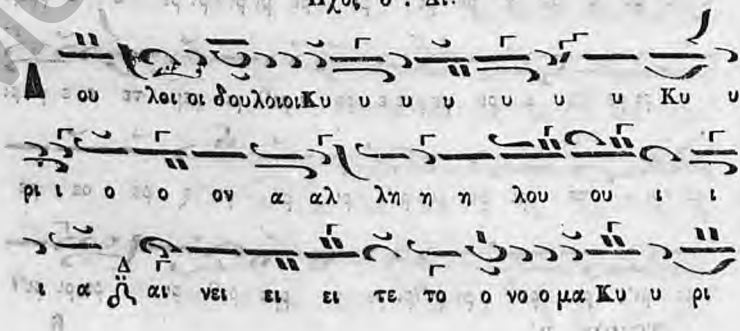 Δ ου λοι οι δουλοιοιΚυ υ υ υ υ υ υ Κυ υ
ρι ι ο ο ον α αλ λη η η λου ου ι ι
ι α αι νει ει ει τε το ο νο ο μα Κυ υ ρι